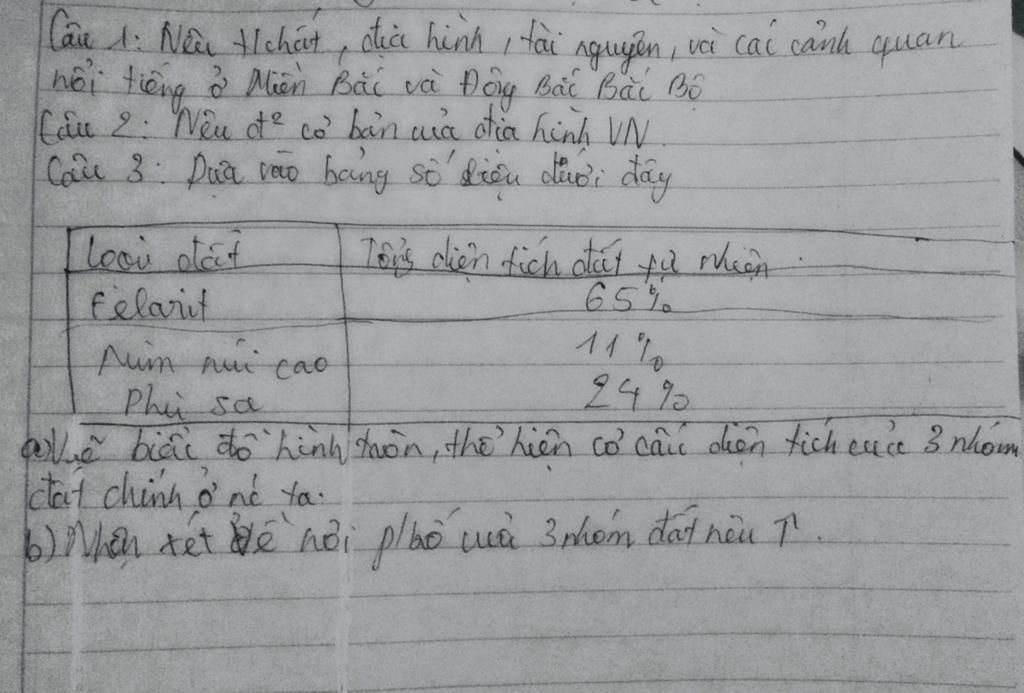 Câu 1: Nêu t/chất, địa hình, tài nguyên, và các cảnh quan
nổi tiếng ở Miền Bắc và Đông Bắc Bắc Bộ
Câu 2: Nêu đ² cơ bản của địa hình VN.
Câu 3: Dựa vào bảng số liệu dưới đây
Loại đất Tổng diện tích đất tự nhiên.
Felarit 65%
Núm núi cao 11%
Phù sa 24%
a) Vẽ biểu đồ hình tròn, thể hiện cơ cấu diện tích của 3 nhóm
đất chính ở nc ta.
b) Nhận xét về nơi p/bố của 3 nhóm đất nêu T^.